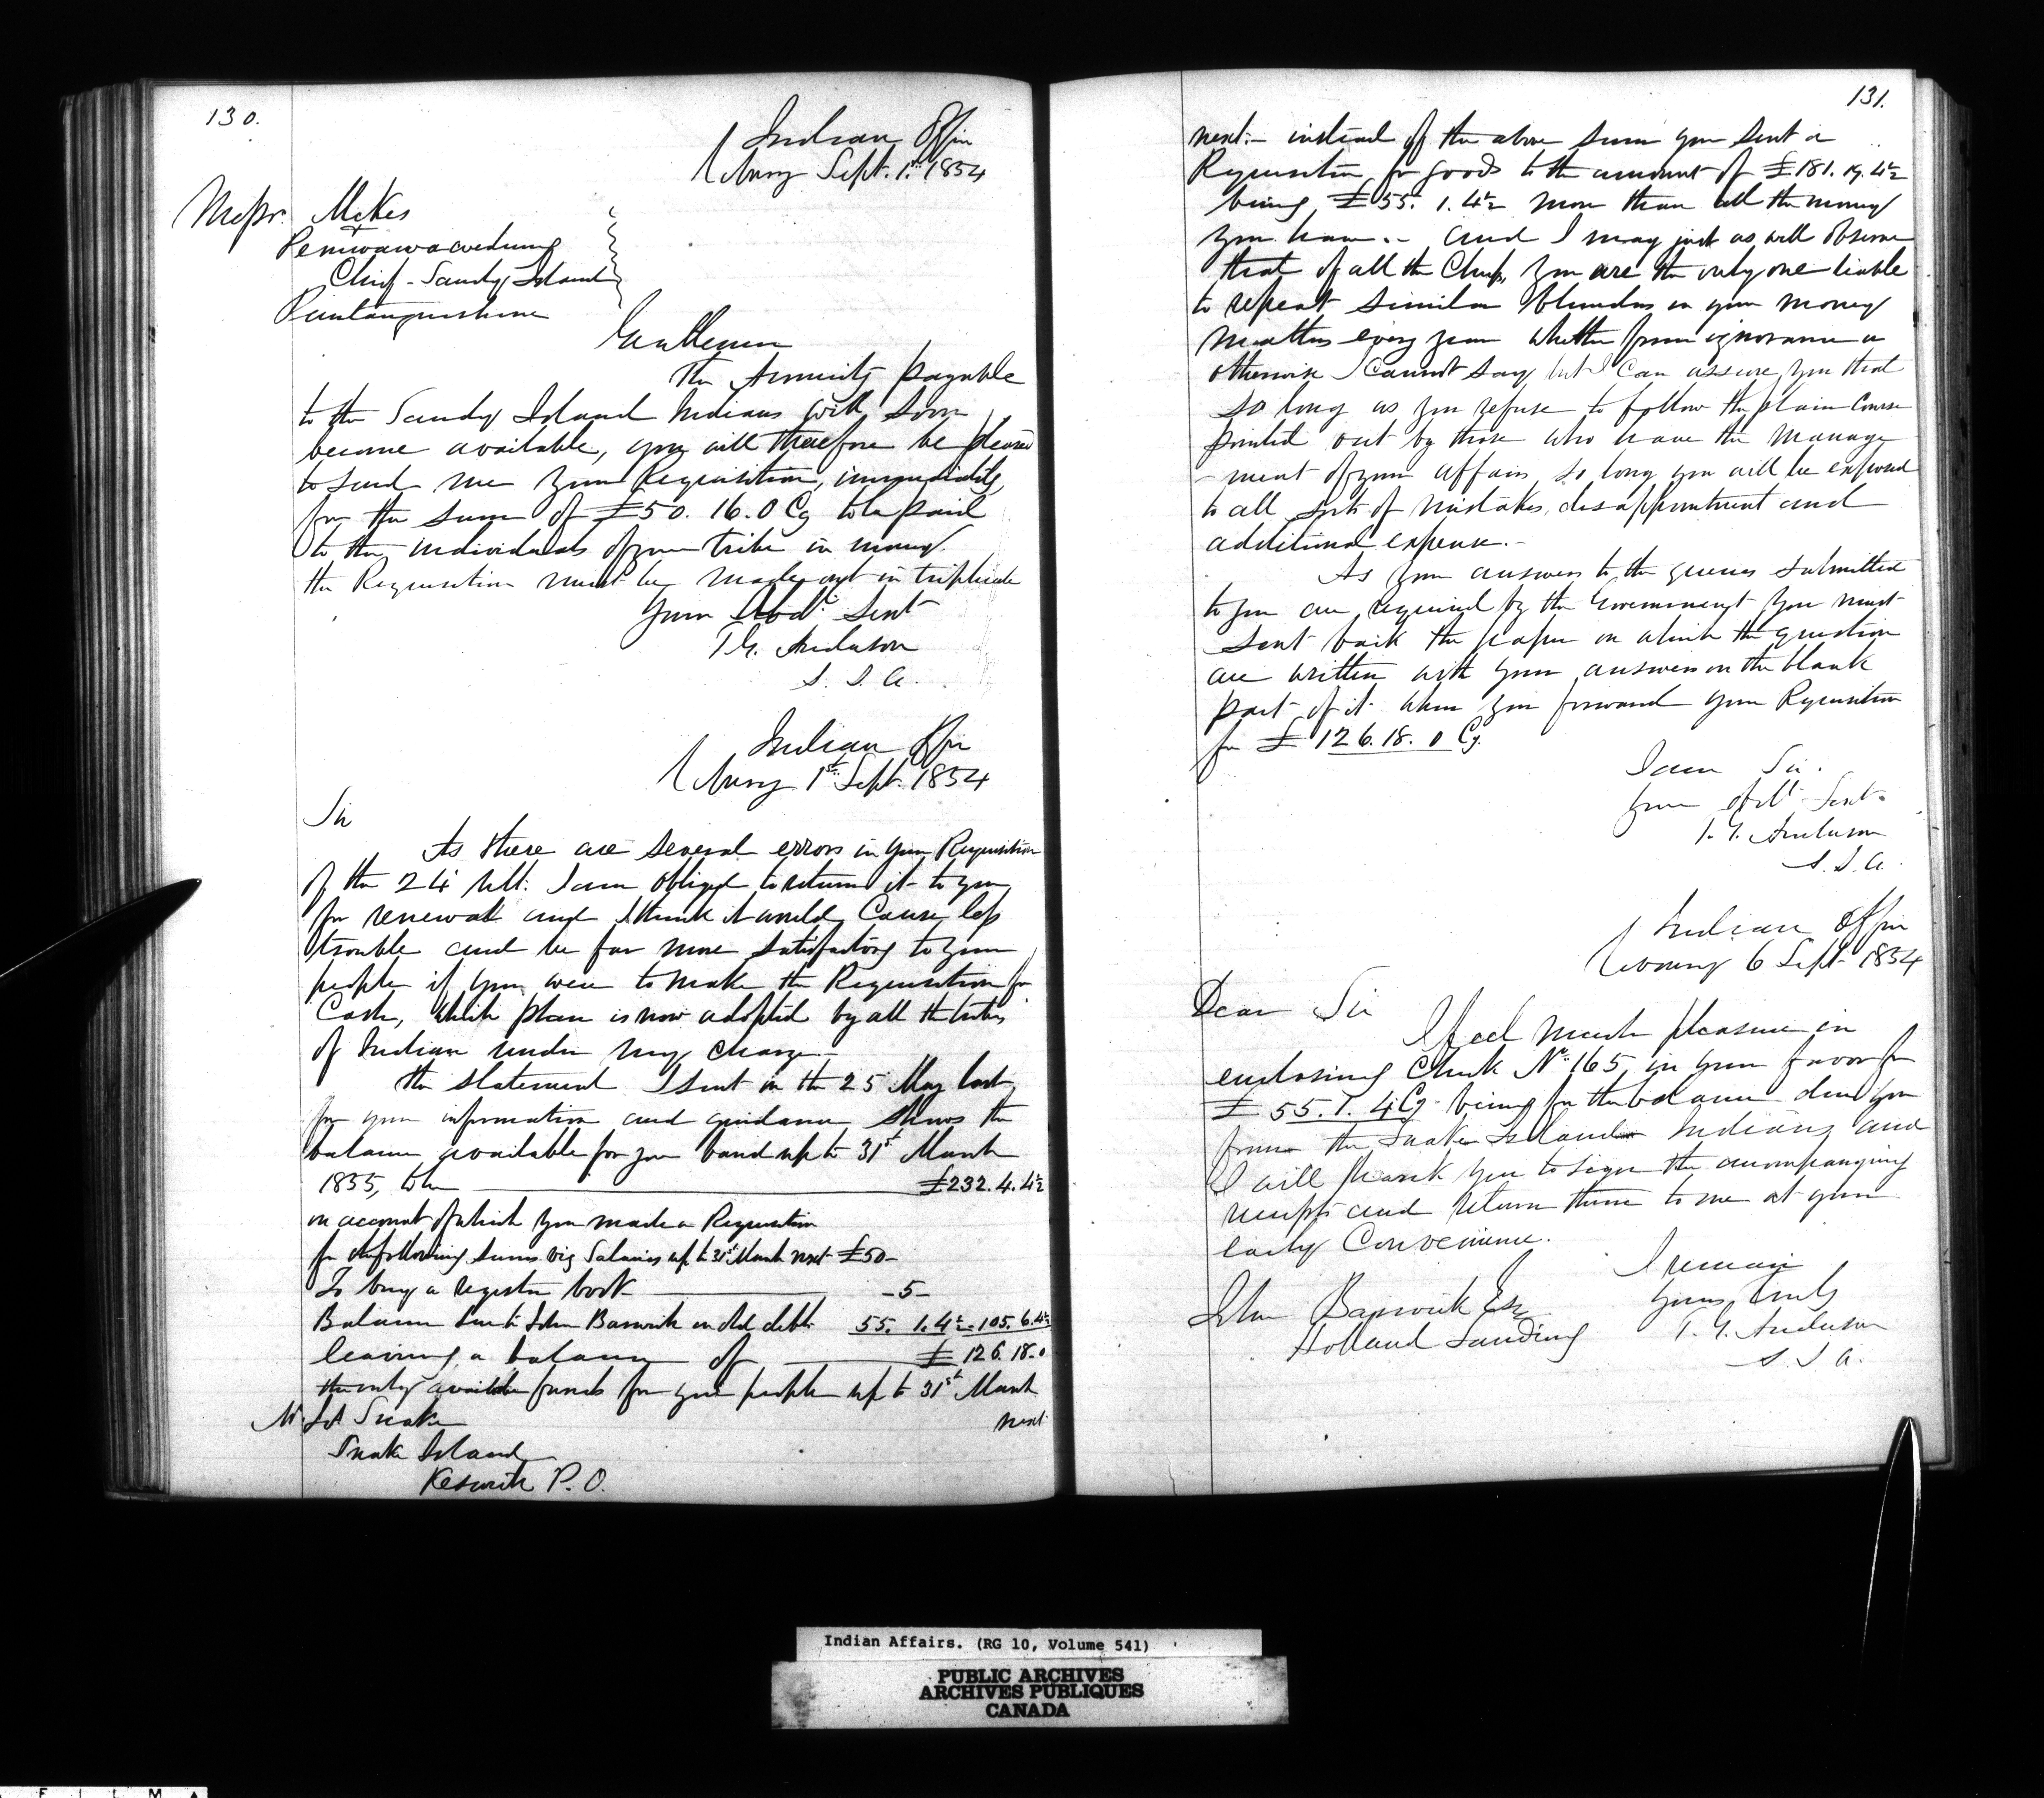 130.
Indian Office
Cobourg Sept. 1st 1854
Messr. Mekis
&
Chief - Sandy Island
Penetanguishene
Gentlemen
The Annuity payable
to the Sandy Island Indians will soon
become available, you will therefore be pleased
to send me your Requisition, immediately,
for the sum of £50. 16. 0 Cy to be paid
to the individuals of your tribe in money.
the Requisition must be made out in triplicate
Your Obdt Servt
T G. Anderson
S. I. A.
Indian Office
Cobourg 1st Sept. 1854
Sir
As there are several errors in your Requisition
of the 24 Ult. I am obliged to return it to you
for renewal and I think it would cause less
trouble and be far more satisfactory to your
people if you were to make the Requisition for
Cash, which plan is now adopted by all the tribes
of Indian under my charge.-
the statement I sent on the 25 May last
for your information and guidance shows the
balance available for your band up to 31st March
1855, to be £232. 4. 4½
on account of which you made a Requisition
for the following sums viz Salaries up to 31st March next £50-
To buy a register book - 5 -
Balance due to John Barwick on old debt 55. 1. 4½ - 105. 6. 4½
leaving a balance of £ 126. 18. 0
the only available funds for your people up to 31st March
next
Mr. Jos Snake
Snake Island
Keswick P. O.
131.
next:- instead of the above sum you sent a
Requisition for goods to the amount of £181. 19. 4½
being £55. 1. 4½ more than all the money
you have.- and I may just as well observe
that of all the Chiefs, you are the only one liable
to repeat similar blunders in your money
matters every year whether from ignorance or
otherwise I cannot say but I can assure you that
so long as you refuse to follow the plain course
pointed out by those who have the manage
-ment of your affairs, so long you will be exposed
to all sorts of mistakes, disappointment and
additional expense.-
As your answers to the queries submitted
to you are required by the Government you must
sent back the paper on which the question
are written with your answers on the blank
part of it when you forward your Requisition
for £ 126. 18. 0 Cy.
I am Sir.
Your Obdt Servt.
T. G. Anderson
S. I. A.
Indian Office
Cobourg 6 Sept. 1854
Dear Sir
I feel much pleasure in
enclosing Check No. 165, in your favor for
£ 55. 1. 4 Cy being for the balance due you
from the Snake Island Indians and
I will thank you to sign the accompanying
receipts and return them to me at your
early Convenience.
I remain
Yours truly
T. G. Anderson
S. I A.
John Barwick Esq
Holland Landing
Indian Affairs. (RG 10, Volume 541)
PUBLIC ARCHIVES
ARCHIVES PUBLIQUES
CANADA
F I L M A